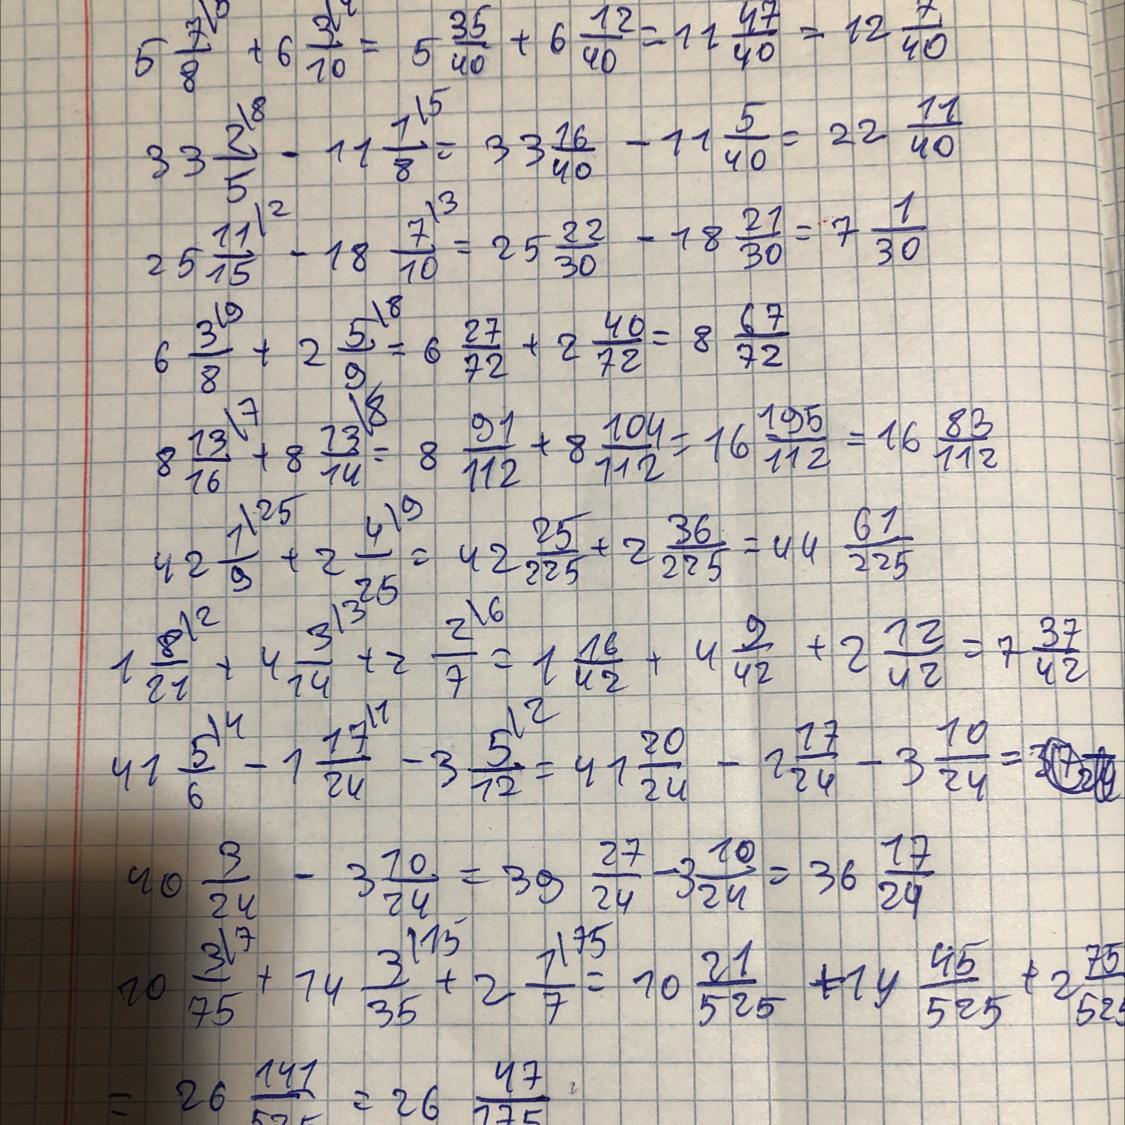 5 7/8 + 6 3/10 = 5 35/40 + 6 12/40 = 11 47/40 = 12 7/40
33 2\8/5 - 11 1\5/8 = 33 16/40 - 11 5/40 = 22 11/40
25 11\2/15 - 18 7\3/10 = 25 22/30 - 18 21/30 = 7 1/30
6 3\9/8 + 2 5\8/9 = 6 27/72 + 2 40/72 = 8 67/72
8 13\7/16 + 8 13\8/14 = 8 91/112 + 8 104/112 = 16 195/112 = 16 83/112
42 1\25/9 + 2 4\9/25 = 42 25/225 + 2 36/225 = 44 61/225
1 8\2/21 + 4 3\3/14 + 2 2\6/7 = 1 16/42 + 4 9/42 + 2 12/42 = 7 37/42
41 5\4/6 - 1 17\1/24 - 3 5\2/12 = 41 20/24 - 1 17/24 - 3 10/24 =
40 3/24 - 3 10/24 = 39 27/24 - 3 10/24 = 36 17/24
10 3\7/75 + 14 3\15/35 + 2 1\75/7 = 10 21/525 + 14 45/525 + 2 75/525
= 26 141/525 = 26 47/175